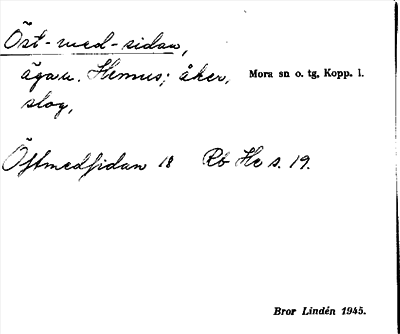 Öst-med-sidan,
äga.u. Hemus; åker, Mora sn o. tg, Kopp. l.
slog,
Östmedsidan 18 Rb He s. 19.
Bror Lindén 1945.